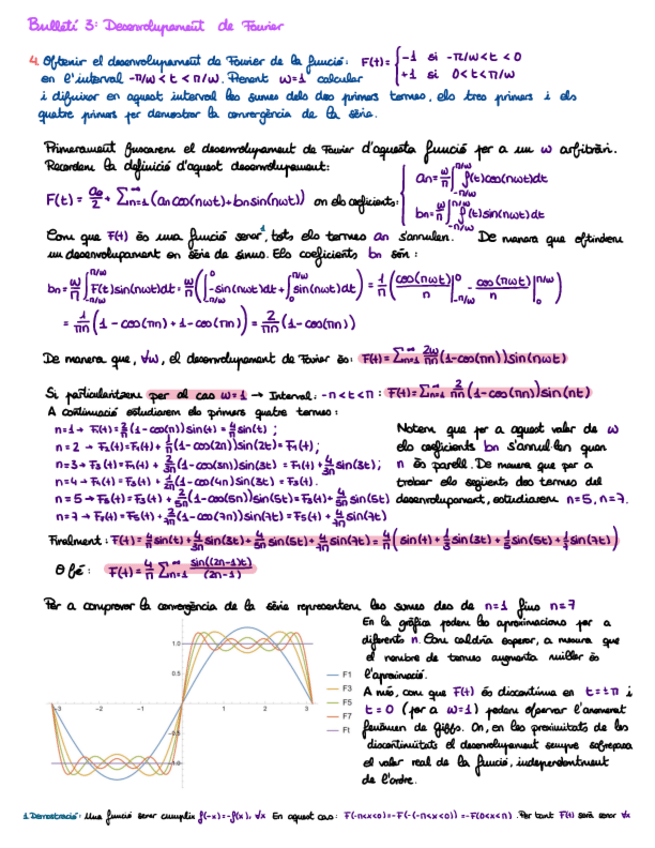 Bulletí 3: Desenvolupament de Fourier
4. Obtenir el desenvolupament de Fourier de la funció: F(t)= { -1 si -π/w<t<0
en l'interval -π/w<t<π/w. Prenent w=1 calcular +1 si 0<t<π/w
i dibuixar en aquest interval les sumes dels dos primers termes, els tres primers i els
quatre primers per demostrar la convergència de la sèrie.
Primerament buscarem el desenvolupament de Fourier d'aquesta funció per a un w arbitrari.
Recordem la definició d'aquest desenvolupament:
F(t) = a₀/2 + Σₙ₌₁^∞ (an cos(nwt)+bn sin(nwt)) on els coeficients: { an = w/π ∫_{-π/w}^{π/w} f(t)cos(nwt)dt
bn = w/π ∫_{-π/w}^{π/w} f(t)sin(nwt)dt
Com que F(t) és una funció senar¹, tots els termes an s'anulen. De manera que obtindrem
un desenvolupament en sèrie de sinus. Els coeficients bn són:
bn = w/π ∫_{-π/w}^{π/w} F(t)sin(nwt)dt = w/π (∫_{-π/w}^{0} -sin(nwt)dt + ∫_{0}^{π/w} sin(nwt)dt) = 1/π (cos(nwt)/n |_{-π/w}^{0} - cos(nwt)/n |_{0}^{π/w})
= 1/πn (1 - cos(πn) + 1 - cos(πn)) = 2/πn (1-cos(πn))
De manera que, ∀w, el desenvolupament de Fourier és: F(t) = Σₙ₌₁^∞ 2w/πn (1-cos(πn))sin(nwt)
Si particularitzem per al cas w=1 → Interval: -π<t<π : F(t) = Σₙ₌₁^∞ 2/πn (1-cos(πn))sin(nt)
A continuació estudiarem els primers quatre termes:
n=1 → F₁(t) = 2/π (1-cos(π))sin(t) = 4/π sin(t) ;
n=2 → F₂(t) = F₁(t) + 1/π (1-cos(2π))sin(2t) = F₁(t) ;
n=3 → F₃(t) = F₁(t) + 2/3π (1-cos(3π))sin(3t) = F₁(t) + 4/3π sin(3t) ;
n=4 → F₄(t) = F₃(t) + 1/2π (1-cos(4π))sin(3t) = F₃(t).
n=5 → F₅(t) = F₃(t) + 2/5π (1-cos(5π))sin(5t) = F₃(t) + 4/5π sin(5t)
n=7 → F₇(t) = F₅(t) + 2/7π (1-cos(7π))sin(7t) = F₅(t) + 4/7π sin(7t)
Notem que per a aquest valor de w
els coeficients bn s'anul·len quan
n és parell. De manera que per a
trobar els següents dos termes del
desenvolupament, estudiarem n=5, n=7.
Finalment: F(t) = 4/π sin(t) + 4/3π sin(3t) + 4/5π sin(5t) + 4/7π sin(7t) = 4/π (sin(t) + 1/3 sin(3t) + 1/5 sin(5t) + 1/7 sin(7t))
O bé: F(t) = 4/π Σₙ₌₁^∞ sin((2n-1)t)/(2n-1)
Per a comprovar la convergència de la sèrie representem les sumes des de n=1 fins n=7
En la gràfica podem les aproximacions per a
diferents n. Com caldria esperar, a mesura que
el nombre de termes augmenta millor és
l'aproximació.
A més, com que F(t) és discontínua en t=±π i
t=0 (per a w=1) podem observar l'anomenat
fenòmen de Gibbs. On, en les proximitats de les
discontinuïtats el desenvolupament sempre sobrepassa
el valor real de la funció, independentment
de l'ordre.
1.0
0.5
-3 -2 -1 1 2 3
-0.5
-1.0
F1
F3
F5
F7
Ft
1. Demostració: Una funció senar cumplix f(-x)=-f(x), ∀x En aquest cas: F(-π<x<0)=-F(-(-π<x<0)) =-F(0<x<π) . Per tant F(t) serà senar ∀x